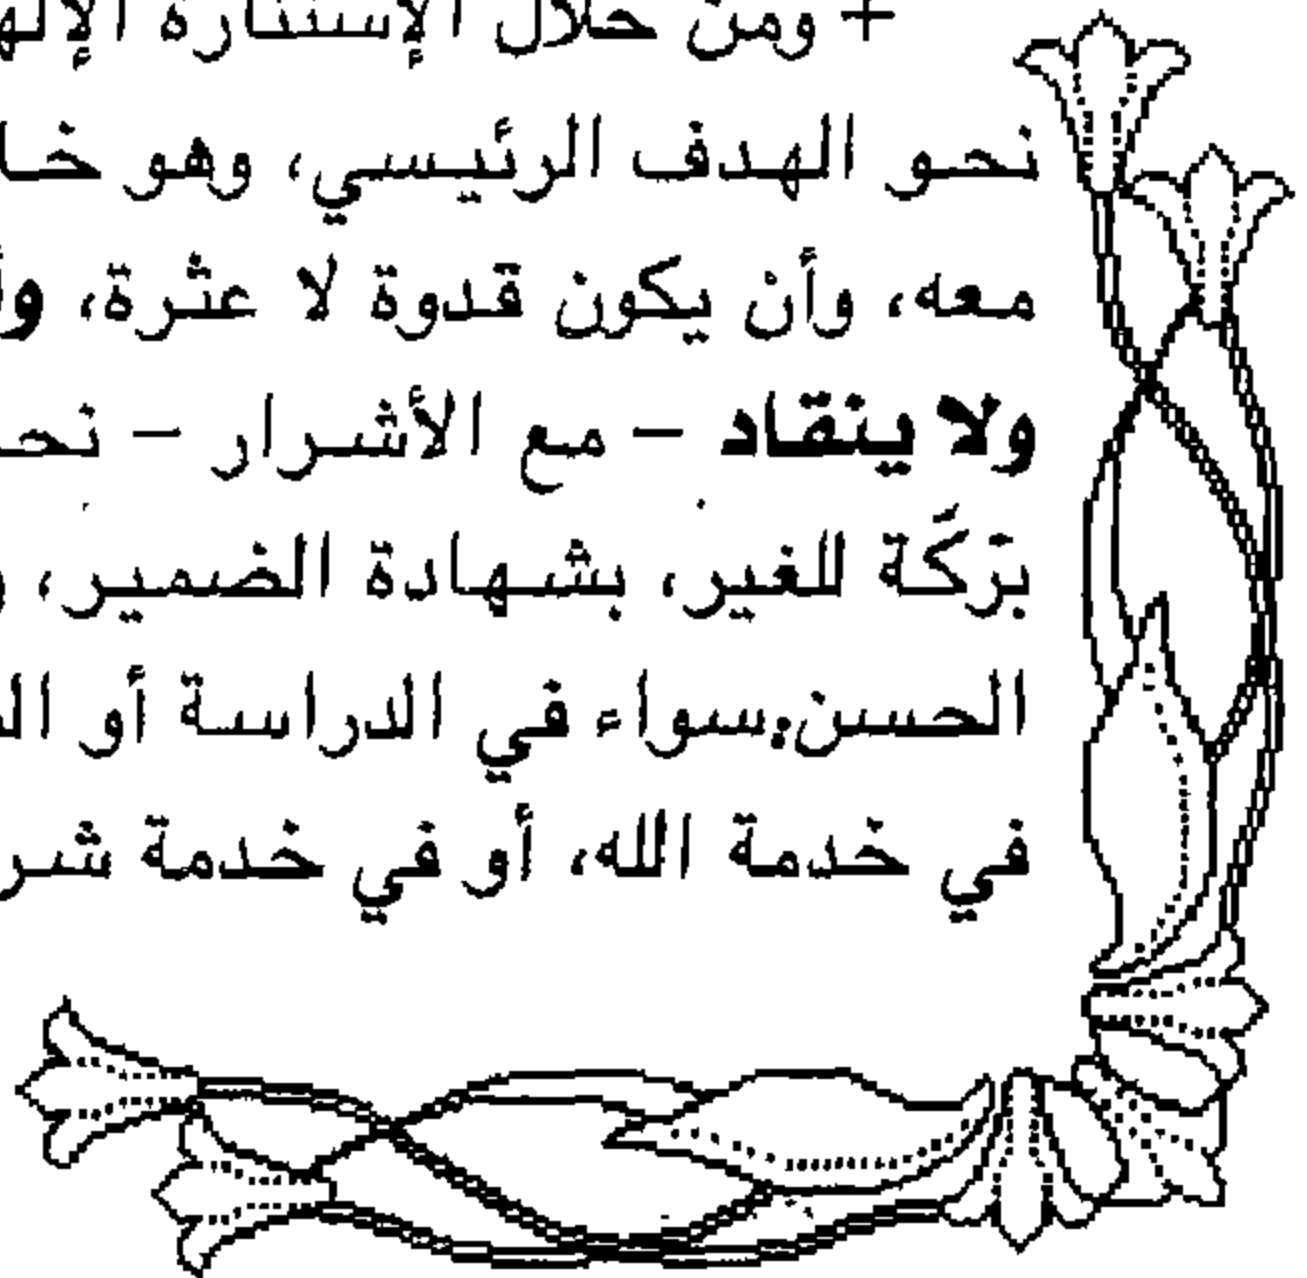 + ومن خلال الإستنارة
نحو الهدف الرئيسي، وهو
معه، وأن يكون قدوة لا عثرة،
ولا ينقاد – مع الأشرار –
بَرَكَة للغير، بشهادة الضمير،
الحسن. سواء في الدراسة أو
في خدمة الله، أو في خدمة